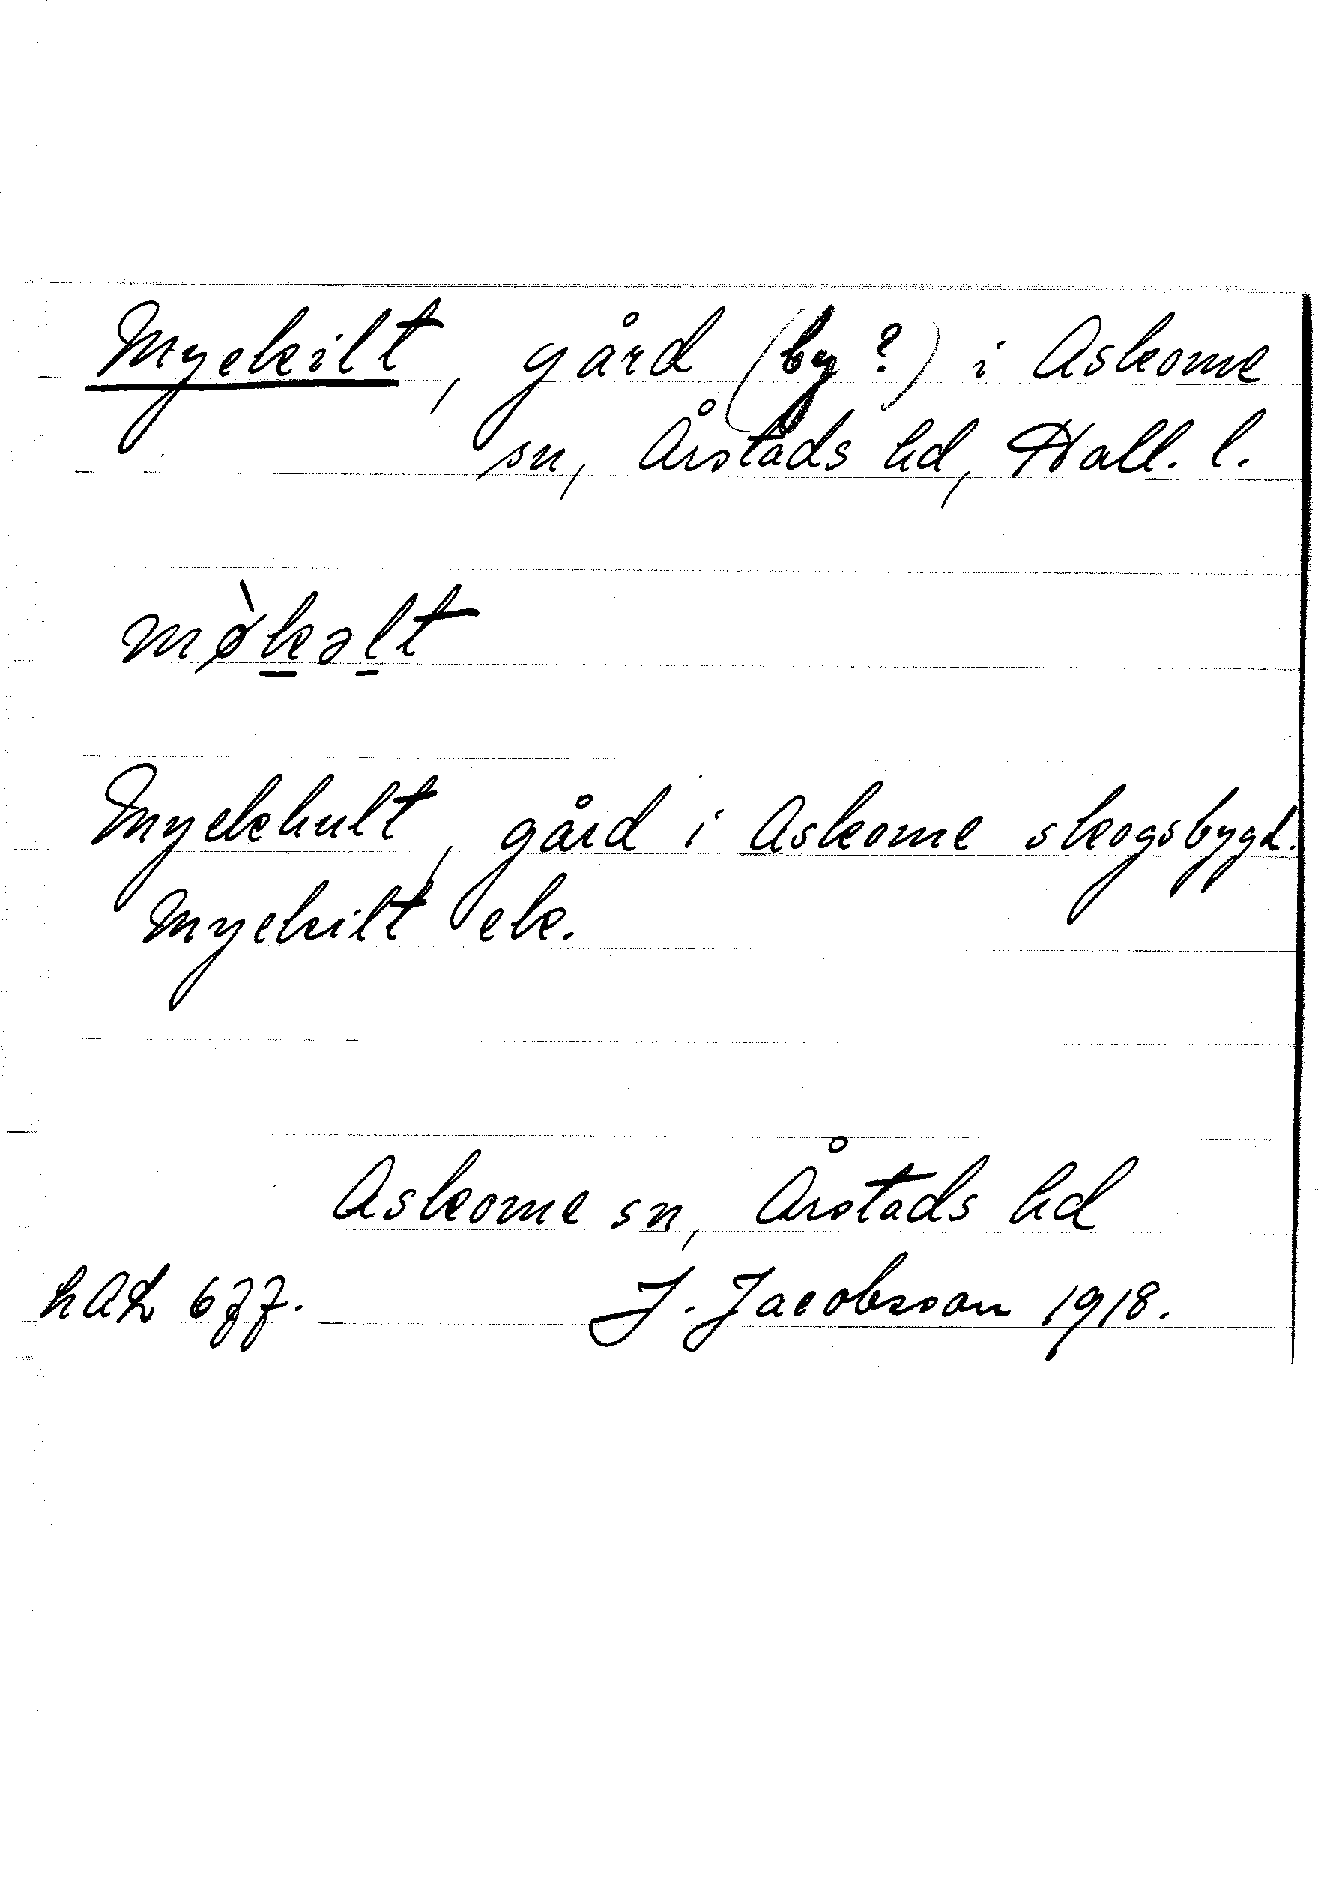 Myckilt, gård (by?) i Askome
sn, Årstads hd, Hall. l.
mø̀kəlt
Myckhult, gård i Askome skogsbygd.
Myckilt ek.
Askome sn, Årstads hd
J. Jacobsson 1918.